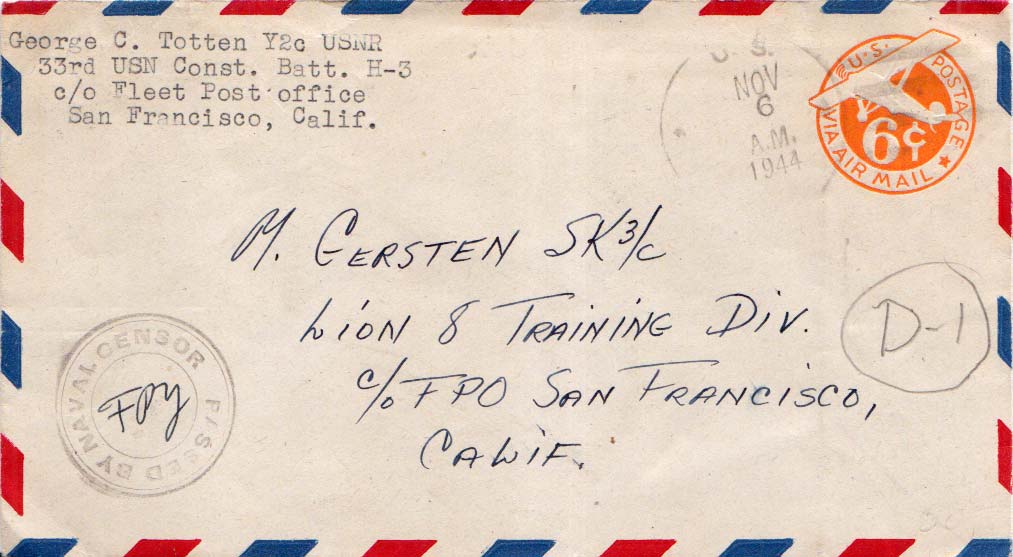 George C. Totten Y2c USNR
33rd USN Const. Batt. H-3
c/o Fleet Post office
San Francisco, Calif.
U. S.
NOV
6
A.M.
1944
U.S. POSTAGE
6¢
VIA AIR MAIL
M. GERSTEN SK 3/c
LION 8 TRAINING DIV.
c/o FPO SAN FRANCISCO,
CALIF.
D-1
PASSED BY NAVAL CENSOR
FPY